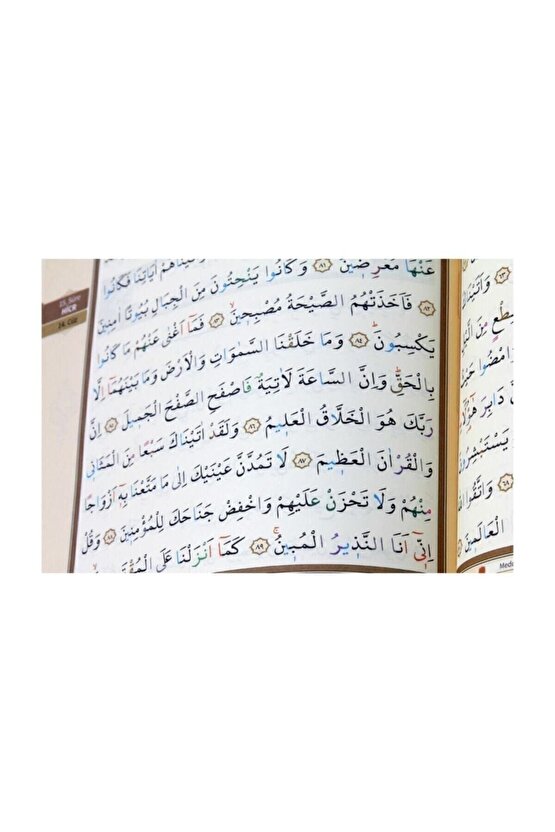 15. Sûre
HİCR
14. Cüz
عَنْهَا مُعْرِضِينَ ﴿٨١﴾ وَكَانُوا يَنْحِتُونَ مِنَ الْجِبَالِ بُيُوتًا اٰمِنِينَ
﴿٨٢﴾ فَاَخَذَتْهُمُ الصَّيْحَةُ مُصْبِحِينَۙ ﴿٨٣﴾ فَمَٓا اَغْنٰى عَنْهُمْ مَا كَانُوا
يَكْسِبُونَۜ ﴿٨٤﴾ وَمَا خَلَقْنَا السَّمٰوَاتِ وَالْاَرْضَ وَمَا بَيْنَهُمَٓا اِلَّا
بِالْحَقِّۜ وَاِنَّ السَّاعَةَ لَاٰتِيَةٌ فَاصْفَحِ الصَّفْحَ الْجَمِيلَ ﴿٨٥﴾ اِنَّ
رَبَّكَ هُوَ الْخَلَّاقُ الْعَلِيمُ ﴿٨٦﴾ وَلَقَدْ اٰتَيْنَاكَ سَبْعًا مِنَ الْمَثَانِي
وَالْقُرْاٰنَ الْعَظِيمَ ﴿٨٧﴾ لَا تَمُدَّنَّ عَيْنَيْكَ اِلٰى مَا مَتَّعْنَا بِهٖٓ اَزْوَاجًا
مِنْهُمْ وَلَا تَحْزَنْ عَلَيْهِمْ وَاخْفِضْ جَنَاحَكَ لِلْمُؤْمِنِينَ ﴿٨٨﴾ وَقُلْ
اِنِّٓي اَنَا النَّذِيرُ الْمُبِينُۚ ﴿٨٩﴾ كَمَٓا اَنْزَلْنَا عَلَى